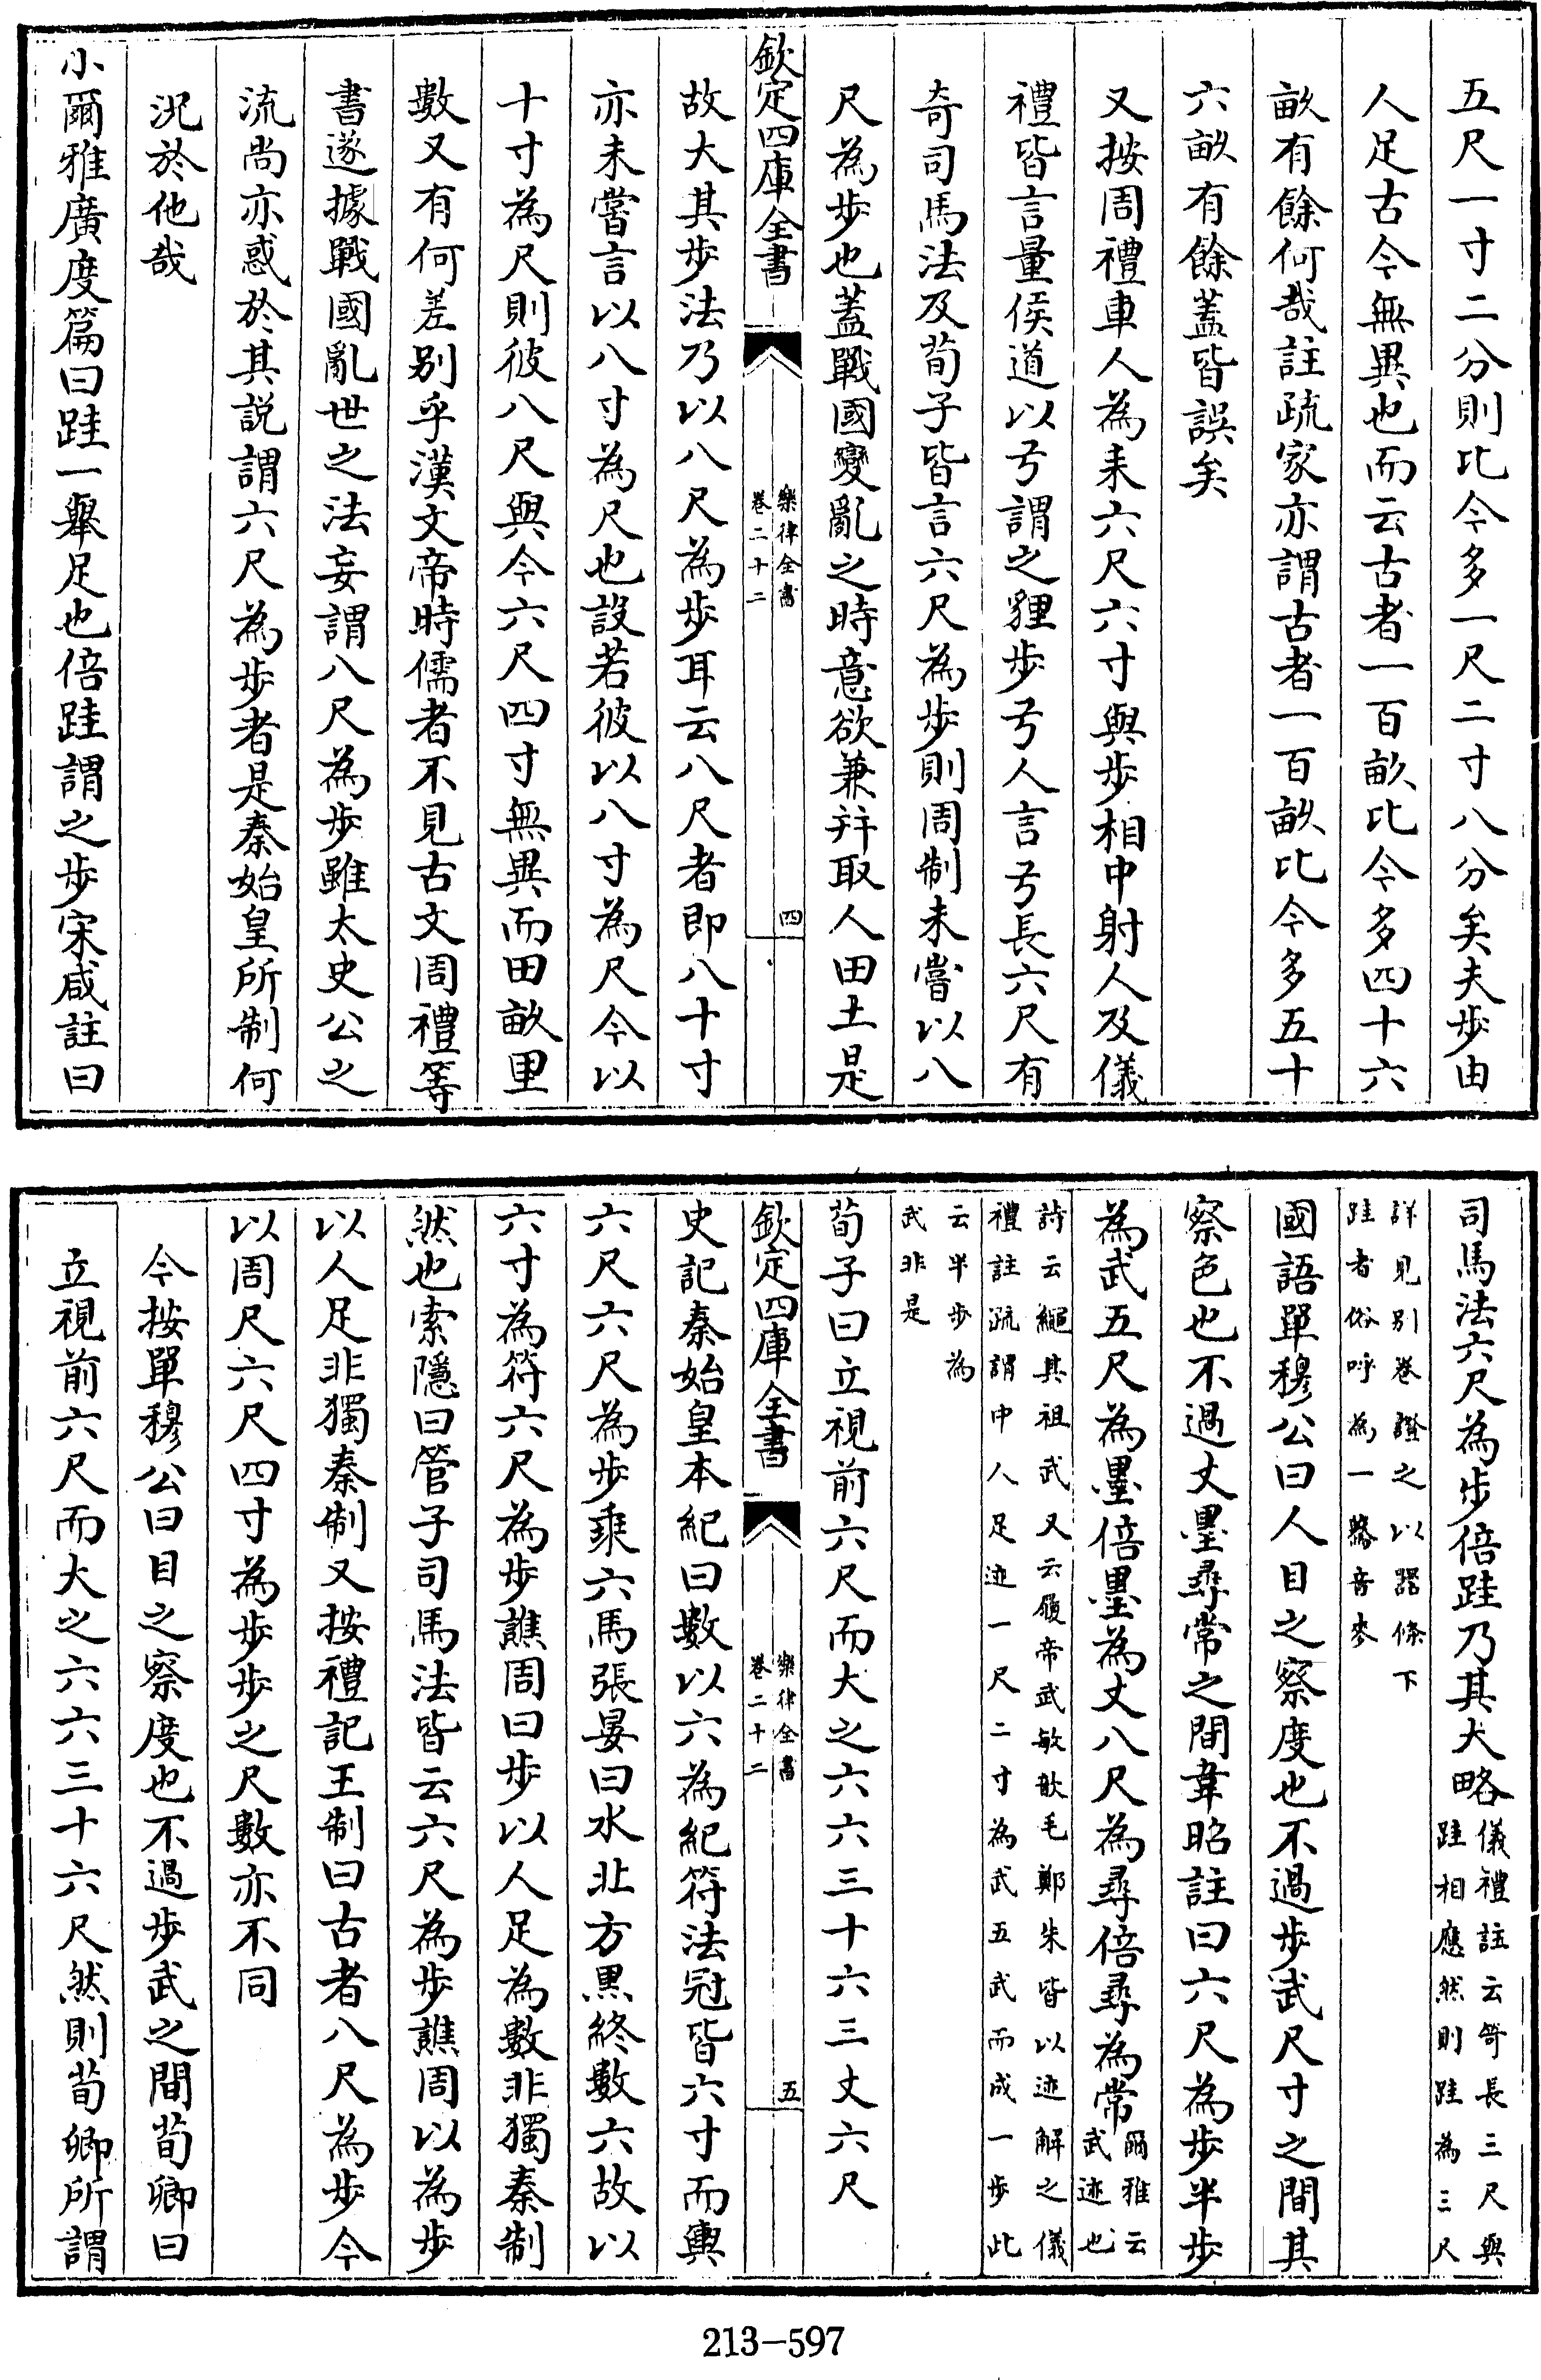 五尺一寸二分則比今多一尺二寸八分矣夫步由
人足古今無異也而云古者一百畝比今多四十六
畝有餘何哉註疏家亦謂古者一百畝比今多五十
六畝有餘蓋皆誤矣
又按周禮車人為耒六尺六寸與步相中射人及儀
禮皆言量侯道以弓謂之貍步弓人言弓長六尺有
奇司馬法及荀子皆言六尺為步則周制未嘗以八
尺為步也蓋戰國變亂之時意欲兼并取人田土是
欽定四庫全書
樂律全書
卷二十二
四
故大其步法乃以八尺為步耳云八尺者即八十寸
亦未嘗言以八寸為尺也設若彼以八寸為尺今以
十寸為尺則彼八尺與今六尺四寸無異而田畝里
數又有何差別乎漢文帝時儒者不見古文周禮等
書遂據戰國亂世之法妄謂八尺為步雖太史公之
流尚亦惑於其説謂六尺為步者是秦始皇所制何
況於他哉
小爾雅廣度篇曰跬一舉足也倍跬謂之步宋咸註曰
司馬法六尺為步倍跬乃其大略儀禮註云笴長三尺與
跬相應然則跬為三尺
詳見別卷證之以器條下
跬者俗呼為一驀音麥
國語單穆公曰人目之察度也不過步武尺寸之間其
察色也不過丈墨尋常之間韋昭註曰六尺為步半步
為武五尺為墨倍墨為丈八尺為尋倍尋為常爾雅云
武迹也
詩云繩其祖武又云履帝武敏歆毛鄭朱皆以迹解之儀
禮註疏謂中人足迹一尺二寸為武五武而成一步此
云半步為
武非是
荀子曰立視前六尺而大之六六三十六三丈六尺
欽定四庫全書
樂律全書
卷二十二
五
史記秦始皇本紀曰數以六為紀符法冠皆六寸而輿
六尺六尺為步乘六馬張晏曰水北方黑終數六故以
六寸為符六尺為步譙周曰步以人足為數非獨秦制
然也索隱曰管子司馬法皆云六尺為步譙周以為步
以人足非獨秦制又按禮記王制曰古者八尺為步今
以周尺六尺四寸為步步之尺數亦不同
今按單穆公曰目之察度也不過步武之間荀卿曰
立視前六尺而大之六六三十六尺然則荀卿所謂
213-597